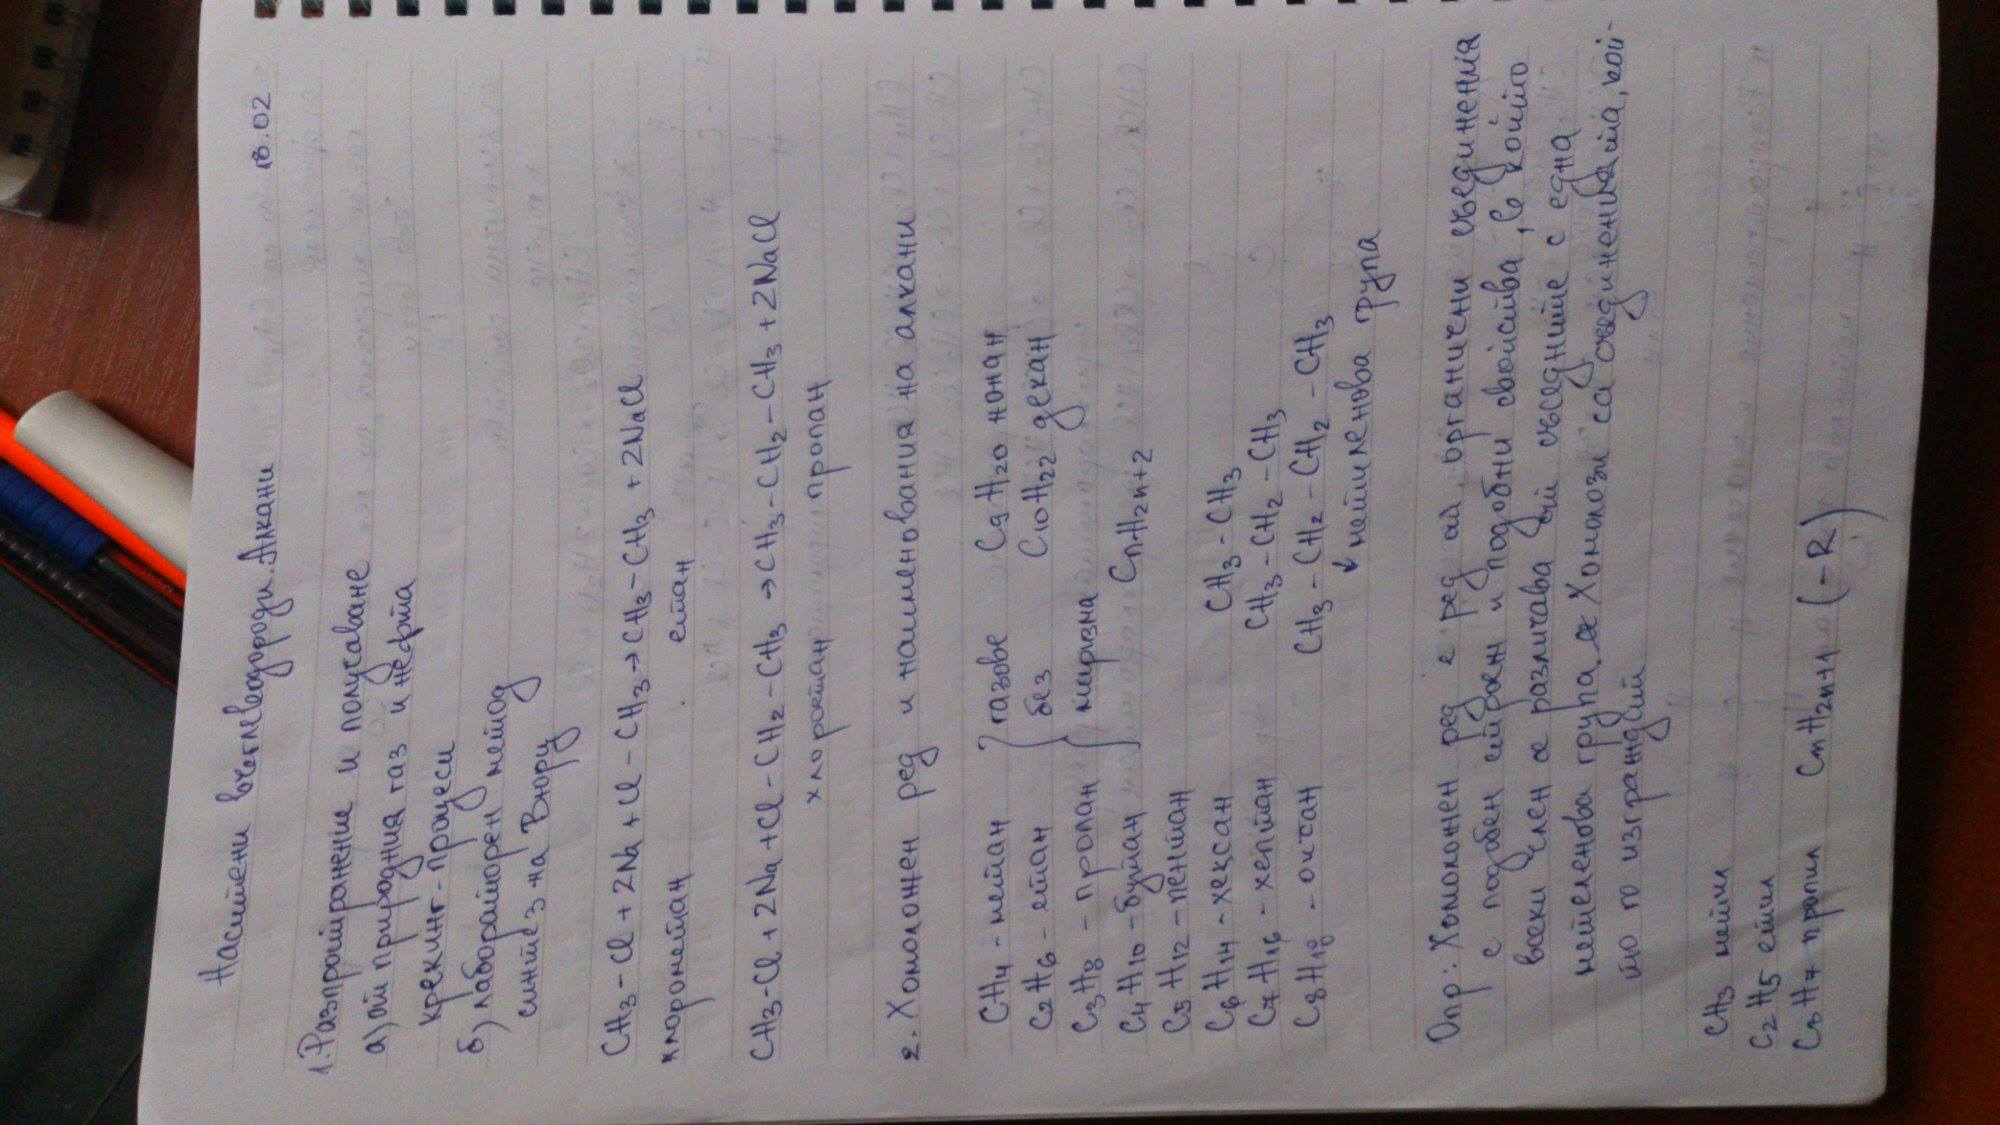 18.02
Наситени въглеводороди. Алкани
1. Разпространение и получаване
а) от природния газ и нефта
крекинг-процеси
б) лабораторен метод
синтез на Вюрц
CH3 - Cl + 2Na + Cl - CH3 → CH3 - CH3 + 2NaCl
хлорометан етан
CH3 - Cl + 2Na + Cl - CH2 - CH3 → CH3 - CH2 - CH3 + 2NaCl
хлоретан пропан
2. Хомоложен ред и наименования на алкани
CH4 - метан газове C9H20 нонан
C2H6 - етан без C10H22 декан
C3H8 - пропан миризма
C4H10 - бутан CnH2n+2
C5H12 - пентан
C6H14 - хексан CH3 - CH3
C7H16 - хептан CH3 - CH2 - CH3
C8H18 - октан CH3 - CH2 - CH2 - CH3
↓ метиленова група
Опр: Хомоложен ред е ред от органични съединения
с подобен строеж и подобни свойства, в който
всеки член се различава от съседните с една
метиленова група. Хомолози са съединенията, кой-
то го изграждат
CH3 метил
C2H5 етил
C3H7 пропил CnH2n+1 (-R)